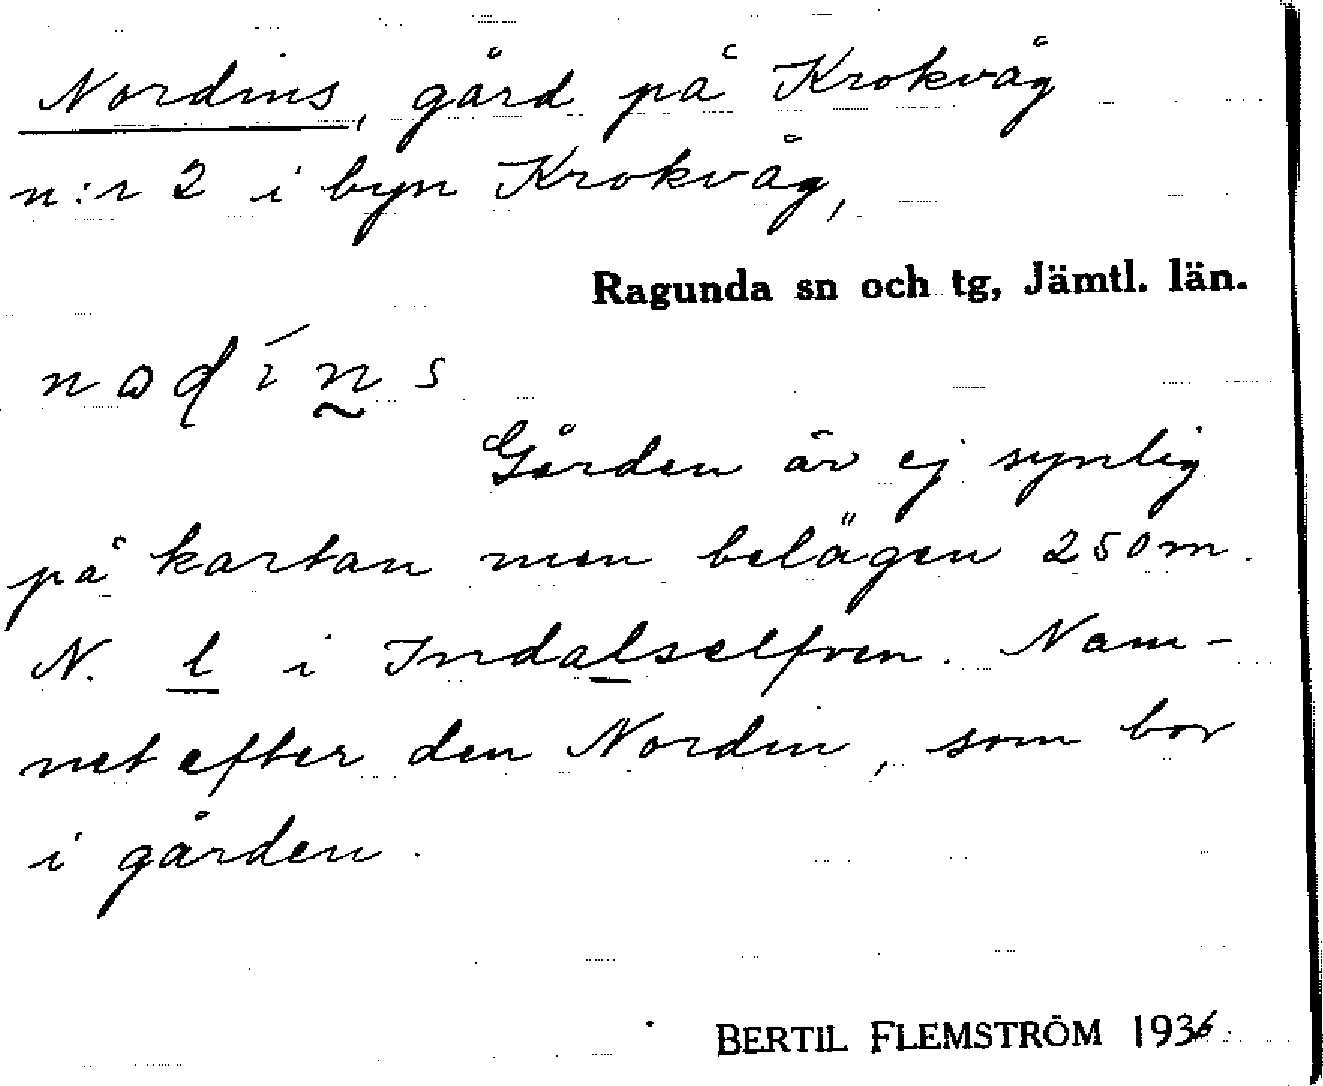 Nordins, gård på Krokvåg
n:r 2 i byn Krokvåg,
Ragunda sn och tg, Jämtl. län.
Gården är ej synlig
på kartan men belägen 250 m.
N. l i Indalselfven. Nam-
net efter den Nordin, som bor
i gården.
BERTIL FLEMSTRÖM 1936